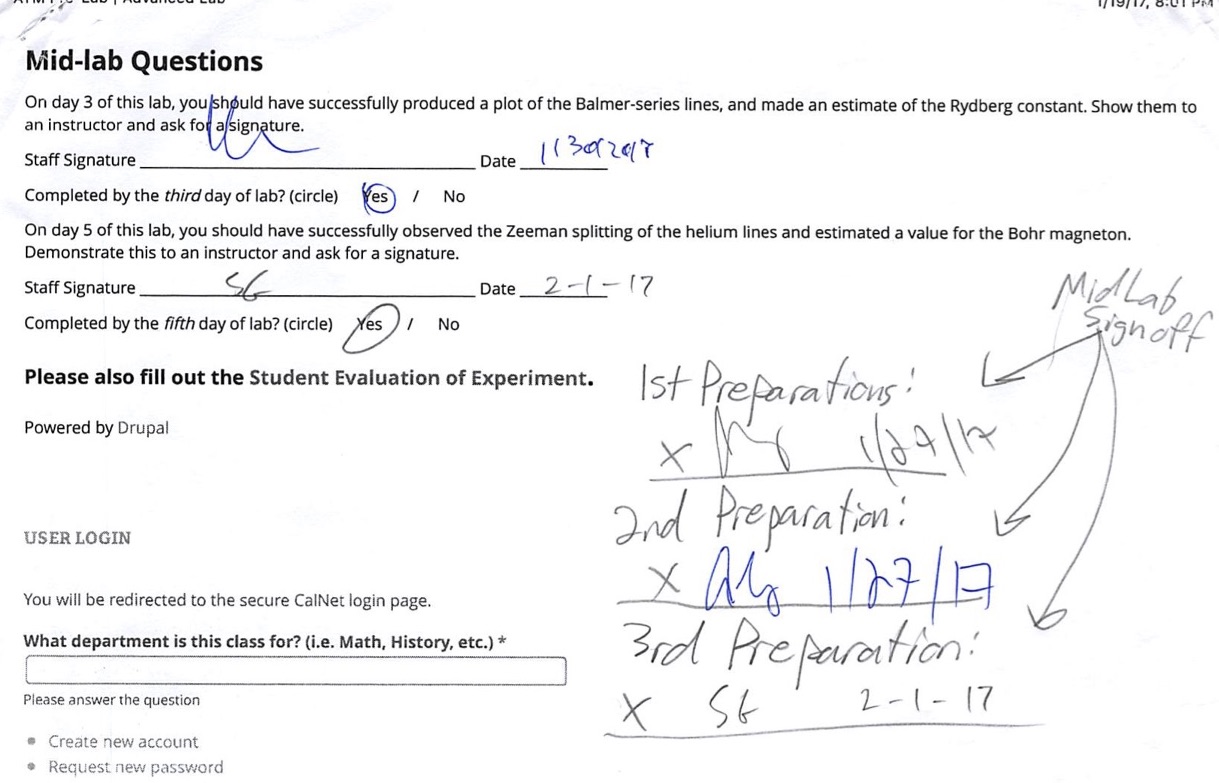 ATM Pre-Lab | Advanced Lab
1/19/17, 8:01 PM
Mid-lab Questions
On day 3 of this lab, you should have successfully produced a plot of the Balmer-series lines, and made an estimate of the Rydberg constant. Show them to
an instructor and ask for a signature.
Staff Signature Date 1/30/2017
Completed by the third day of lab? (circle) Yes / No
On day 5 of this lab, you should have successfully observed the Zeeman splitting of the helium lines and estimated a value for the Bohr magneton.
Demonstrate this to an instructor and ask for a signature.
Staff Signature SG Date 2-1-17
Completed by the fifth day of lab? (circle) Yes / No
Please also fill out the Student Evaluation of Experiment.
Powered by Drupal
USER LOGIN
You will be redirected to the secure CalNet login page.
What department is this class for? (i.e. Math, History, etc.) *
Please answer the question
• Create new account
• Request new password
MidLab
Signoff
1st Preparations:
X 1/27/17
2nd Preparation:
X 1/27/17
3rd Preparation:
X SG 2-1-17